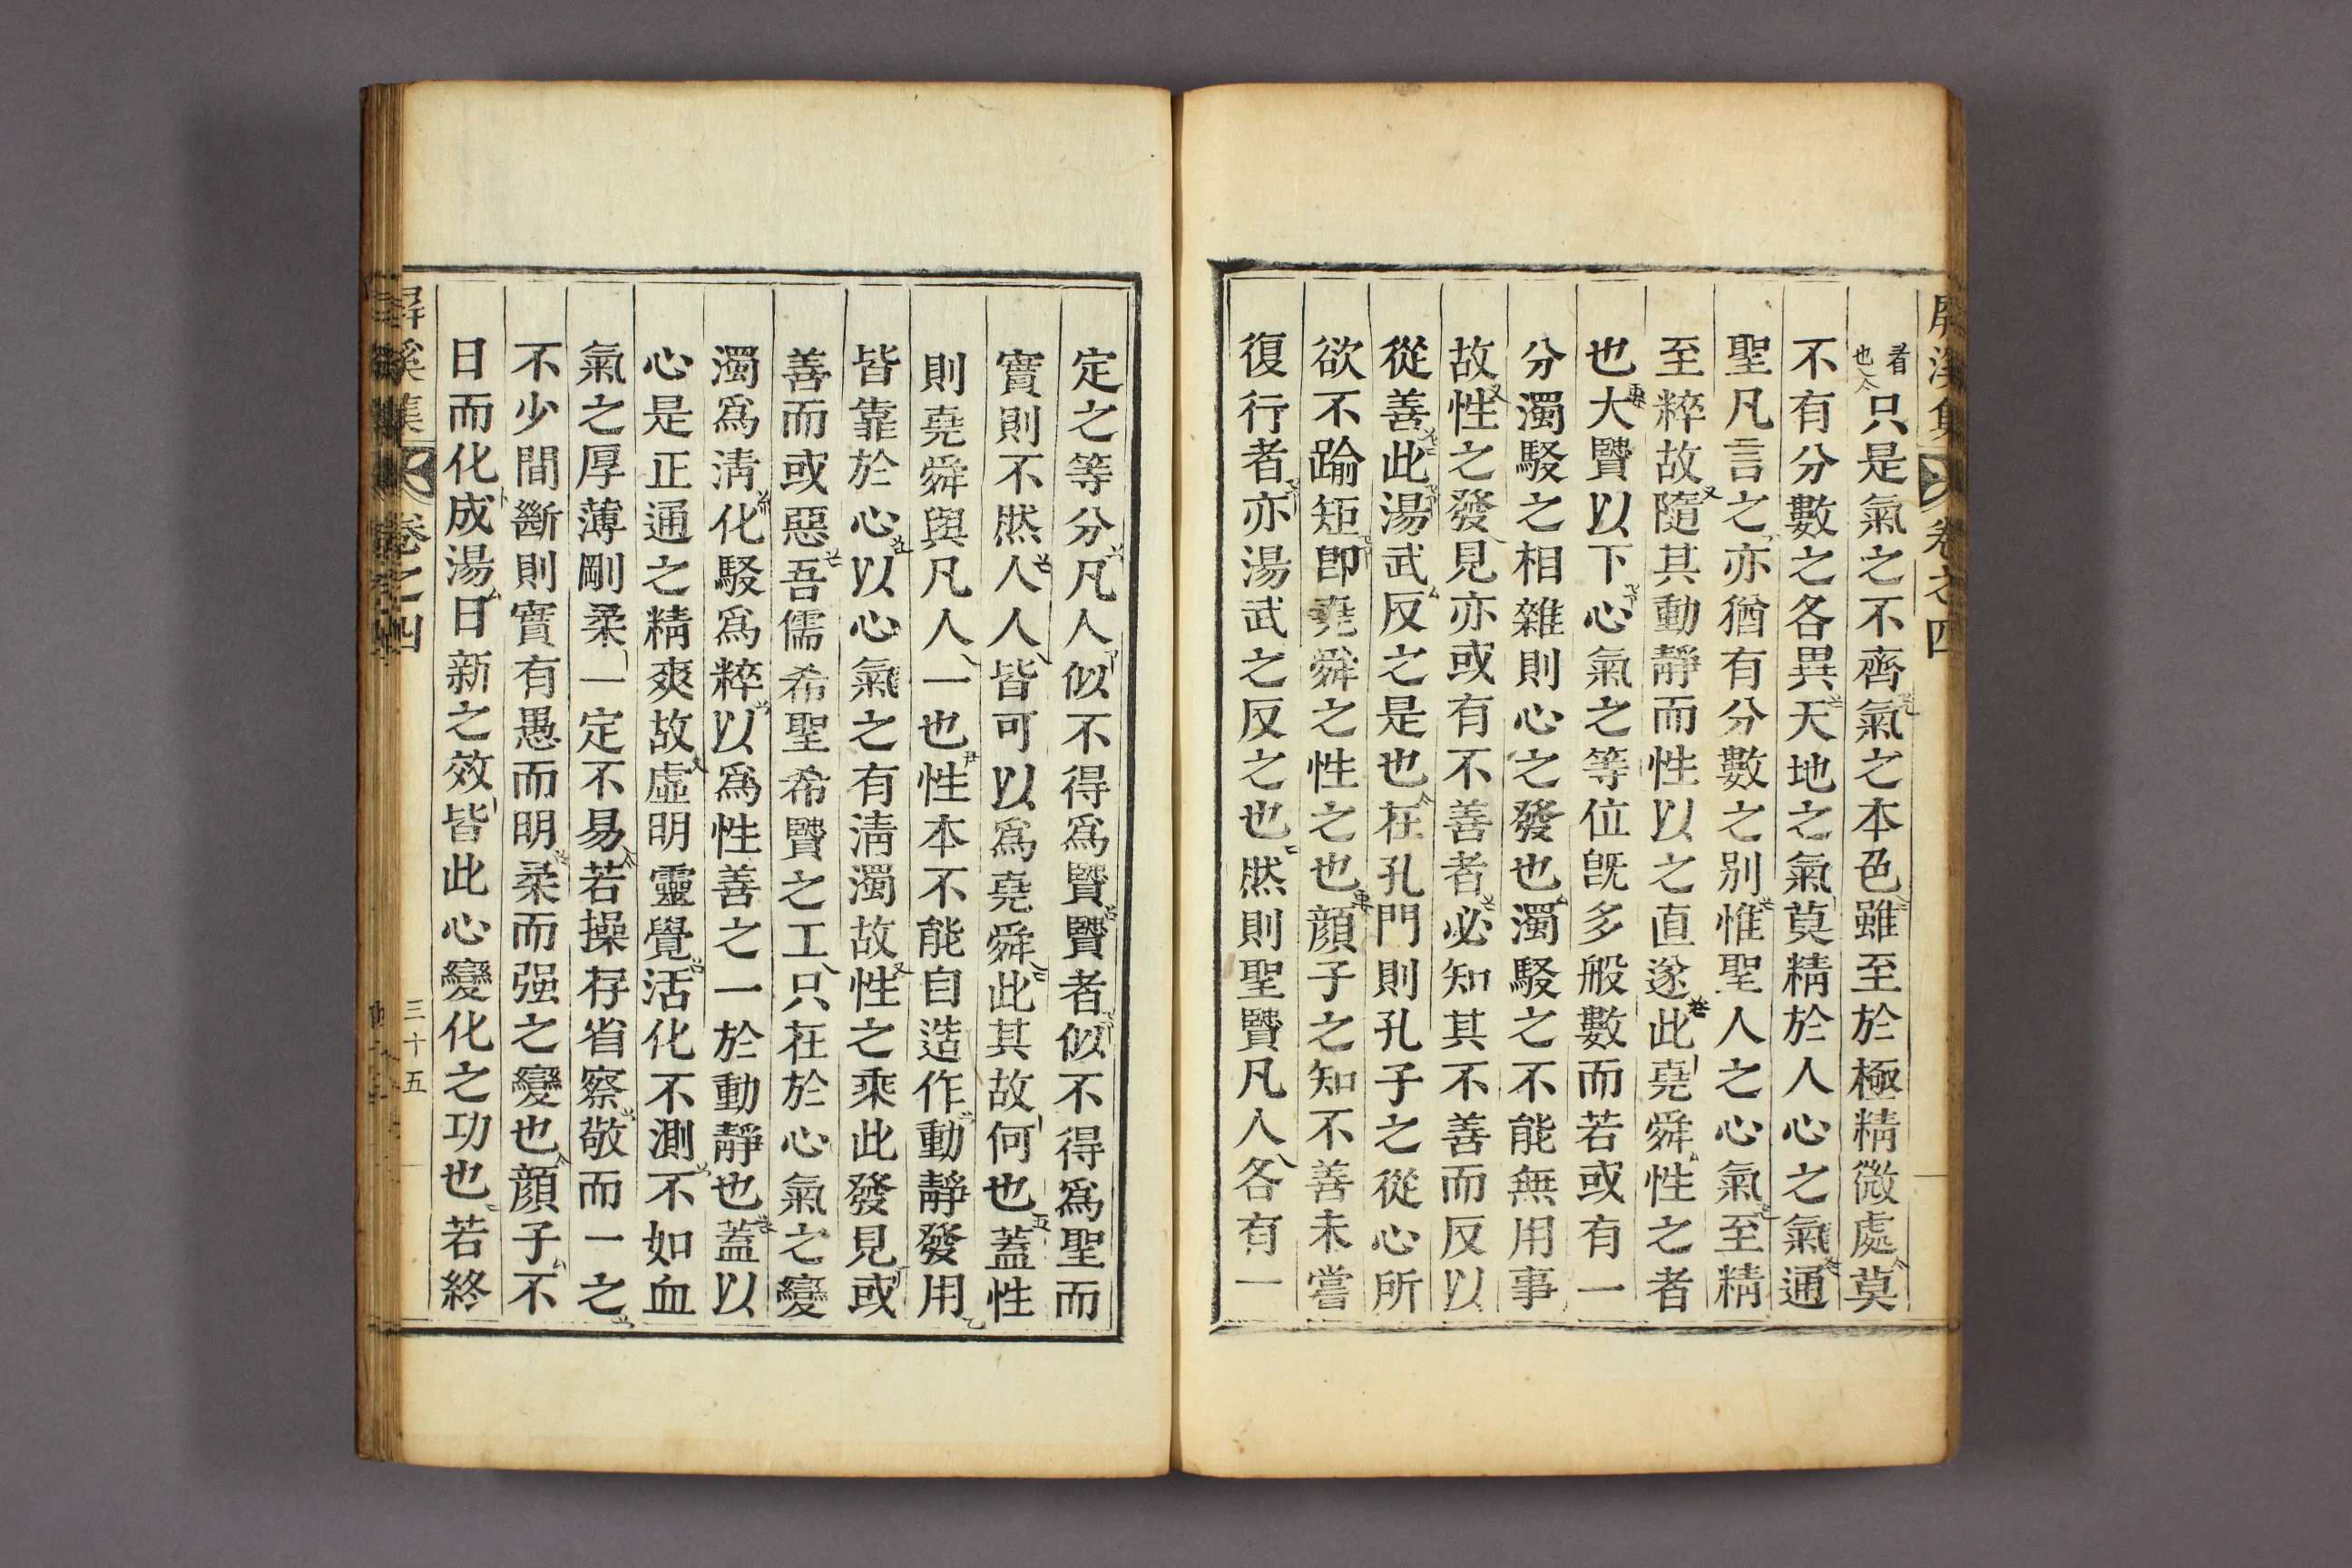 屛溪集 卷之四
看
也
只是氣之不齊氣之本色雖至於極精微處莫
不有分數之各異天地之氣莫精於人心之氣通
聖凡言之亦猶有分數之别惟聖人之心氣至精
至粹故隨其動靜而性以之直遂此堯舜性之者
也大賢以下心氣之等位旣多般數而若或有一
分濁駁之相雜則心之發也濁駁之不能無用事
故性之發見亦或有不善者必知其不善而反以
從善此湯武反之是也在孔門則孔子之從心所
欲不踰矩卽堯舜之性之也顔子之知不善未嘗
復行者亦湯武之反之也然則聖賢凡人各有一
定之等分凡人似不得爲賢賢者似不得爲聖而
實則不然人人皆可以爲堯舜此其故何也蓋性
則堯舜與凡人一也性本不能自造作動靜發用
皆靠於心以心氣之有淸濁故性之乘此發見或
善而或惡吾儒希聖希賢之工只在於心氣之變
濁爲淸化駁爲粹以爲性善之一於動靜也蓋以
心是正通之精爽故虛明靈覺活化不測不如血
氣之厚薄剛柔一定不易若操存省察敬而一之
不少間斷則實有愚而明柔而强之變也顔子不
日而化成湯日新之效皆此心變化之功也若終
屛溪集 卷之四 三十五